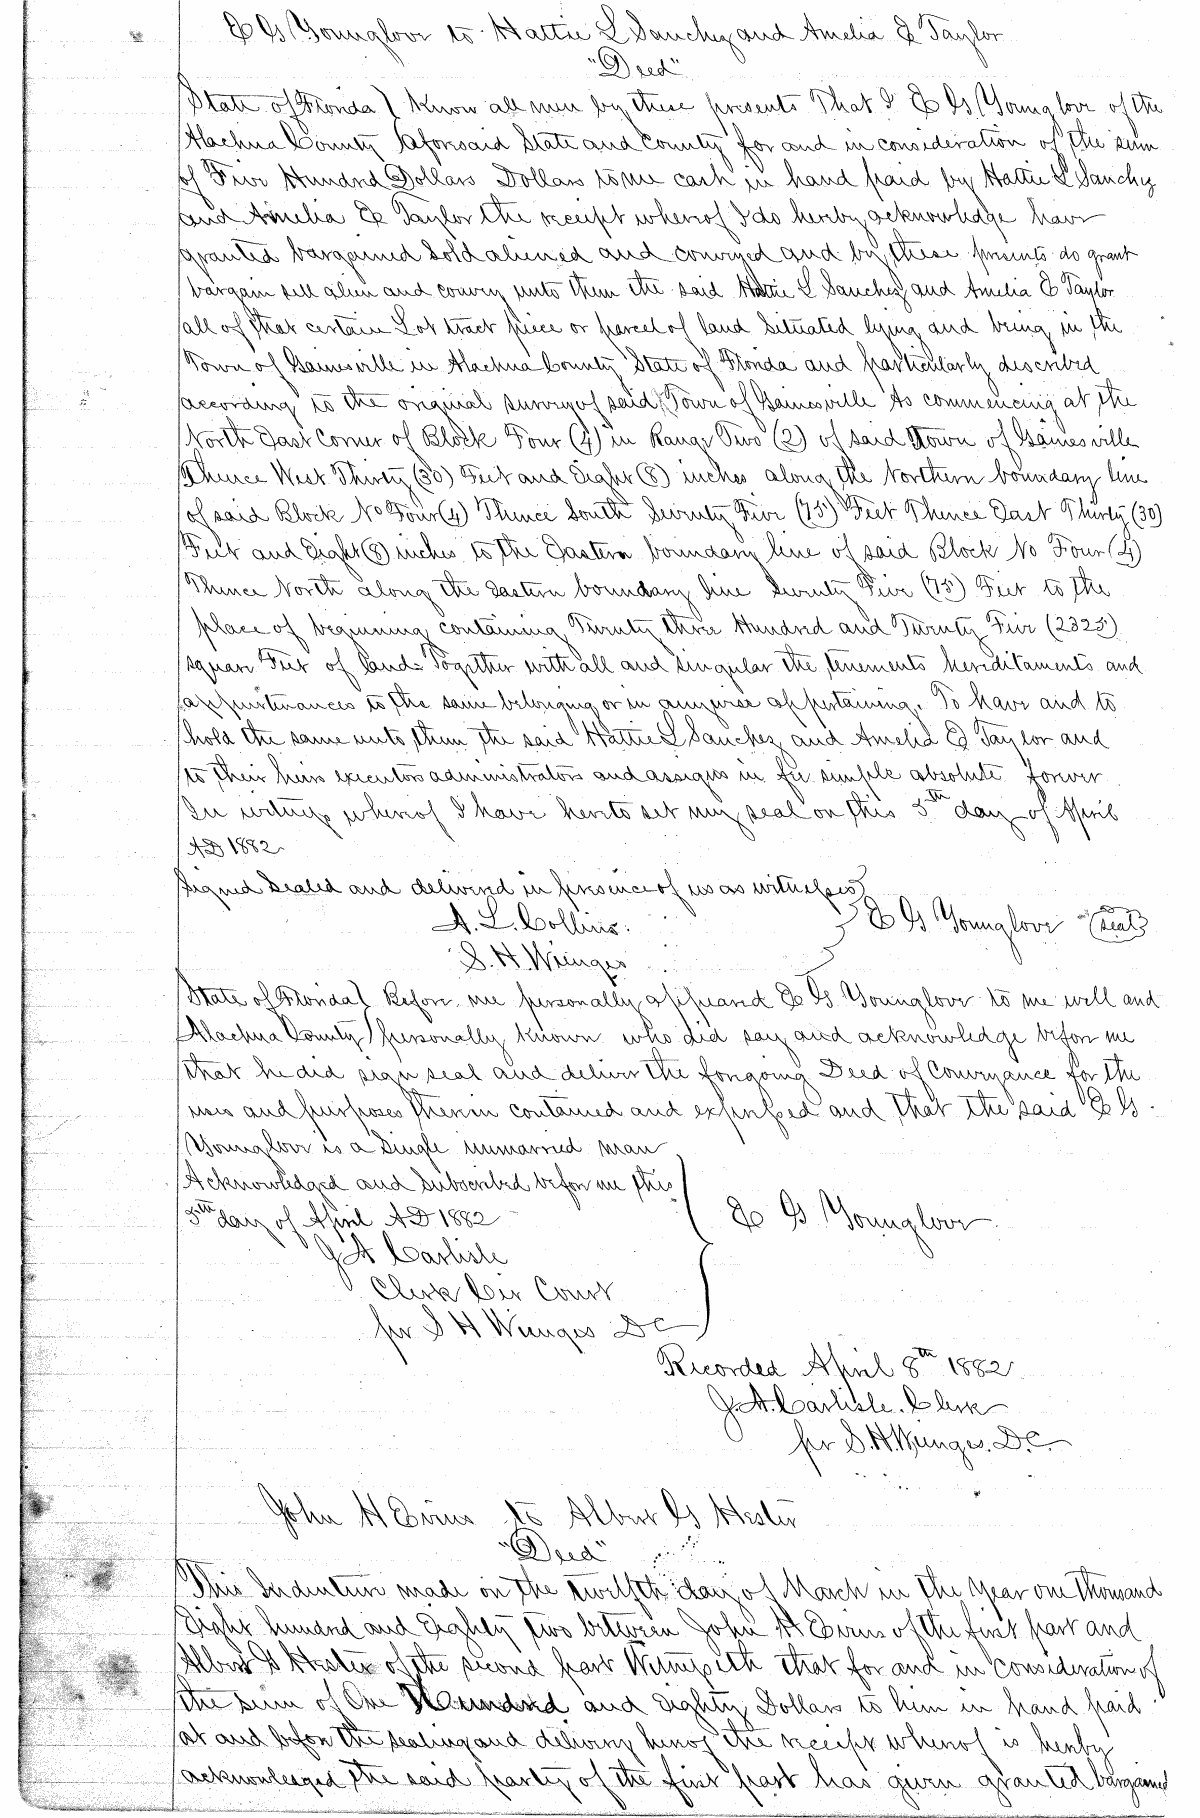 E G Younglove to Hattie L Sanchez and Amelia E Taylor
"Deed"
State of Florida } Know all men by these presents That I E G Younglove of the
Alachua County } aforesaid State and County for and in consideration of the sum
of Five Hundred Dollars Dollars to me cash in hand paid by Hattie L Sanchez
and Amelia E Taylor the receipt whereof I do hereby acknowledge have
granted bargained sold aliened and conveyed and by these presents do grant
bargain sell alien and convey unto them the said Hattie L Sanchez and Amelia E Taylor
all of that certain Lot tract piece or parcel of land Situated lying and being in the
Town of Gainesville in Alachua County State of Florida and particularly described
according to the original survey of said Town of Gainesville As commencing at the
North East Corner of Block Four (4) in Range Two (2) of said Town of Gainesville
Thence West Thirty (30) Feet and Eight (8) inches along the Northern boundary line
of said Block No Four (4) Thence South Seventy Five (75) Feet Thence East Thirty (30)
Feet and Eight (8) inches to the Eastern boundary line of said Block No Four (4)
Thence North along the Eastern boundary line Seventy Five (75) Feet to the
place of beginning containing Twenty three Hundred and Twenty Five (2325)
square Feet of land. Together with all and singular the tenements hereditaments and
appurtenances to the same belonging or in anywise appertaining. To have and to
hold the same unto them the said Hattie L Sanchez and Amelia E Taylor and
to their heirs executors administrators and assigns in fee simple absolute forever
In witness whereof I have hereto set my seal on this 5th day of April
AD 1882
Signed Sealed and delivered in presence of us as witnesses }
A. L. Collins. } E G Younglove (seal)
S. H. Wienges
State of Florida } Before me personally appeared E G Younglove to me well and
Alachua County } personally known who did say and acknowledge before me
that he did sign seal and deliver the foregoing Deed of Conveyance for the
uses and purposes therein contained and expressed and that the said E G.
Younglove is a single unmarried man
Acknowledged and Subscribed before me this
5th day of April AD 1882 E G Younglove
J A Carlisle
Clerk Cir Court
per S H Wienges DC
Recorded April 8th 1882
J. A. Carlisle. Clerk
per S. H. Wienges. D.C.
John H Evins to Albert G Hester
"Deed"
This Indenture made on the twelfth day of March in the Year one thousand
Eight hundred and Eighty two between John H Evins of the first part and
Albert G Hester of the second part Witnesseth that for and in consideration of
the sum of One Hundred and Eighty Dollars to him in hand paid
at and before the sealing and delivery hereof the receipt whereof is hereby
acknowledged the said party of the first part has given granted bargained